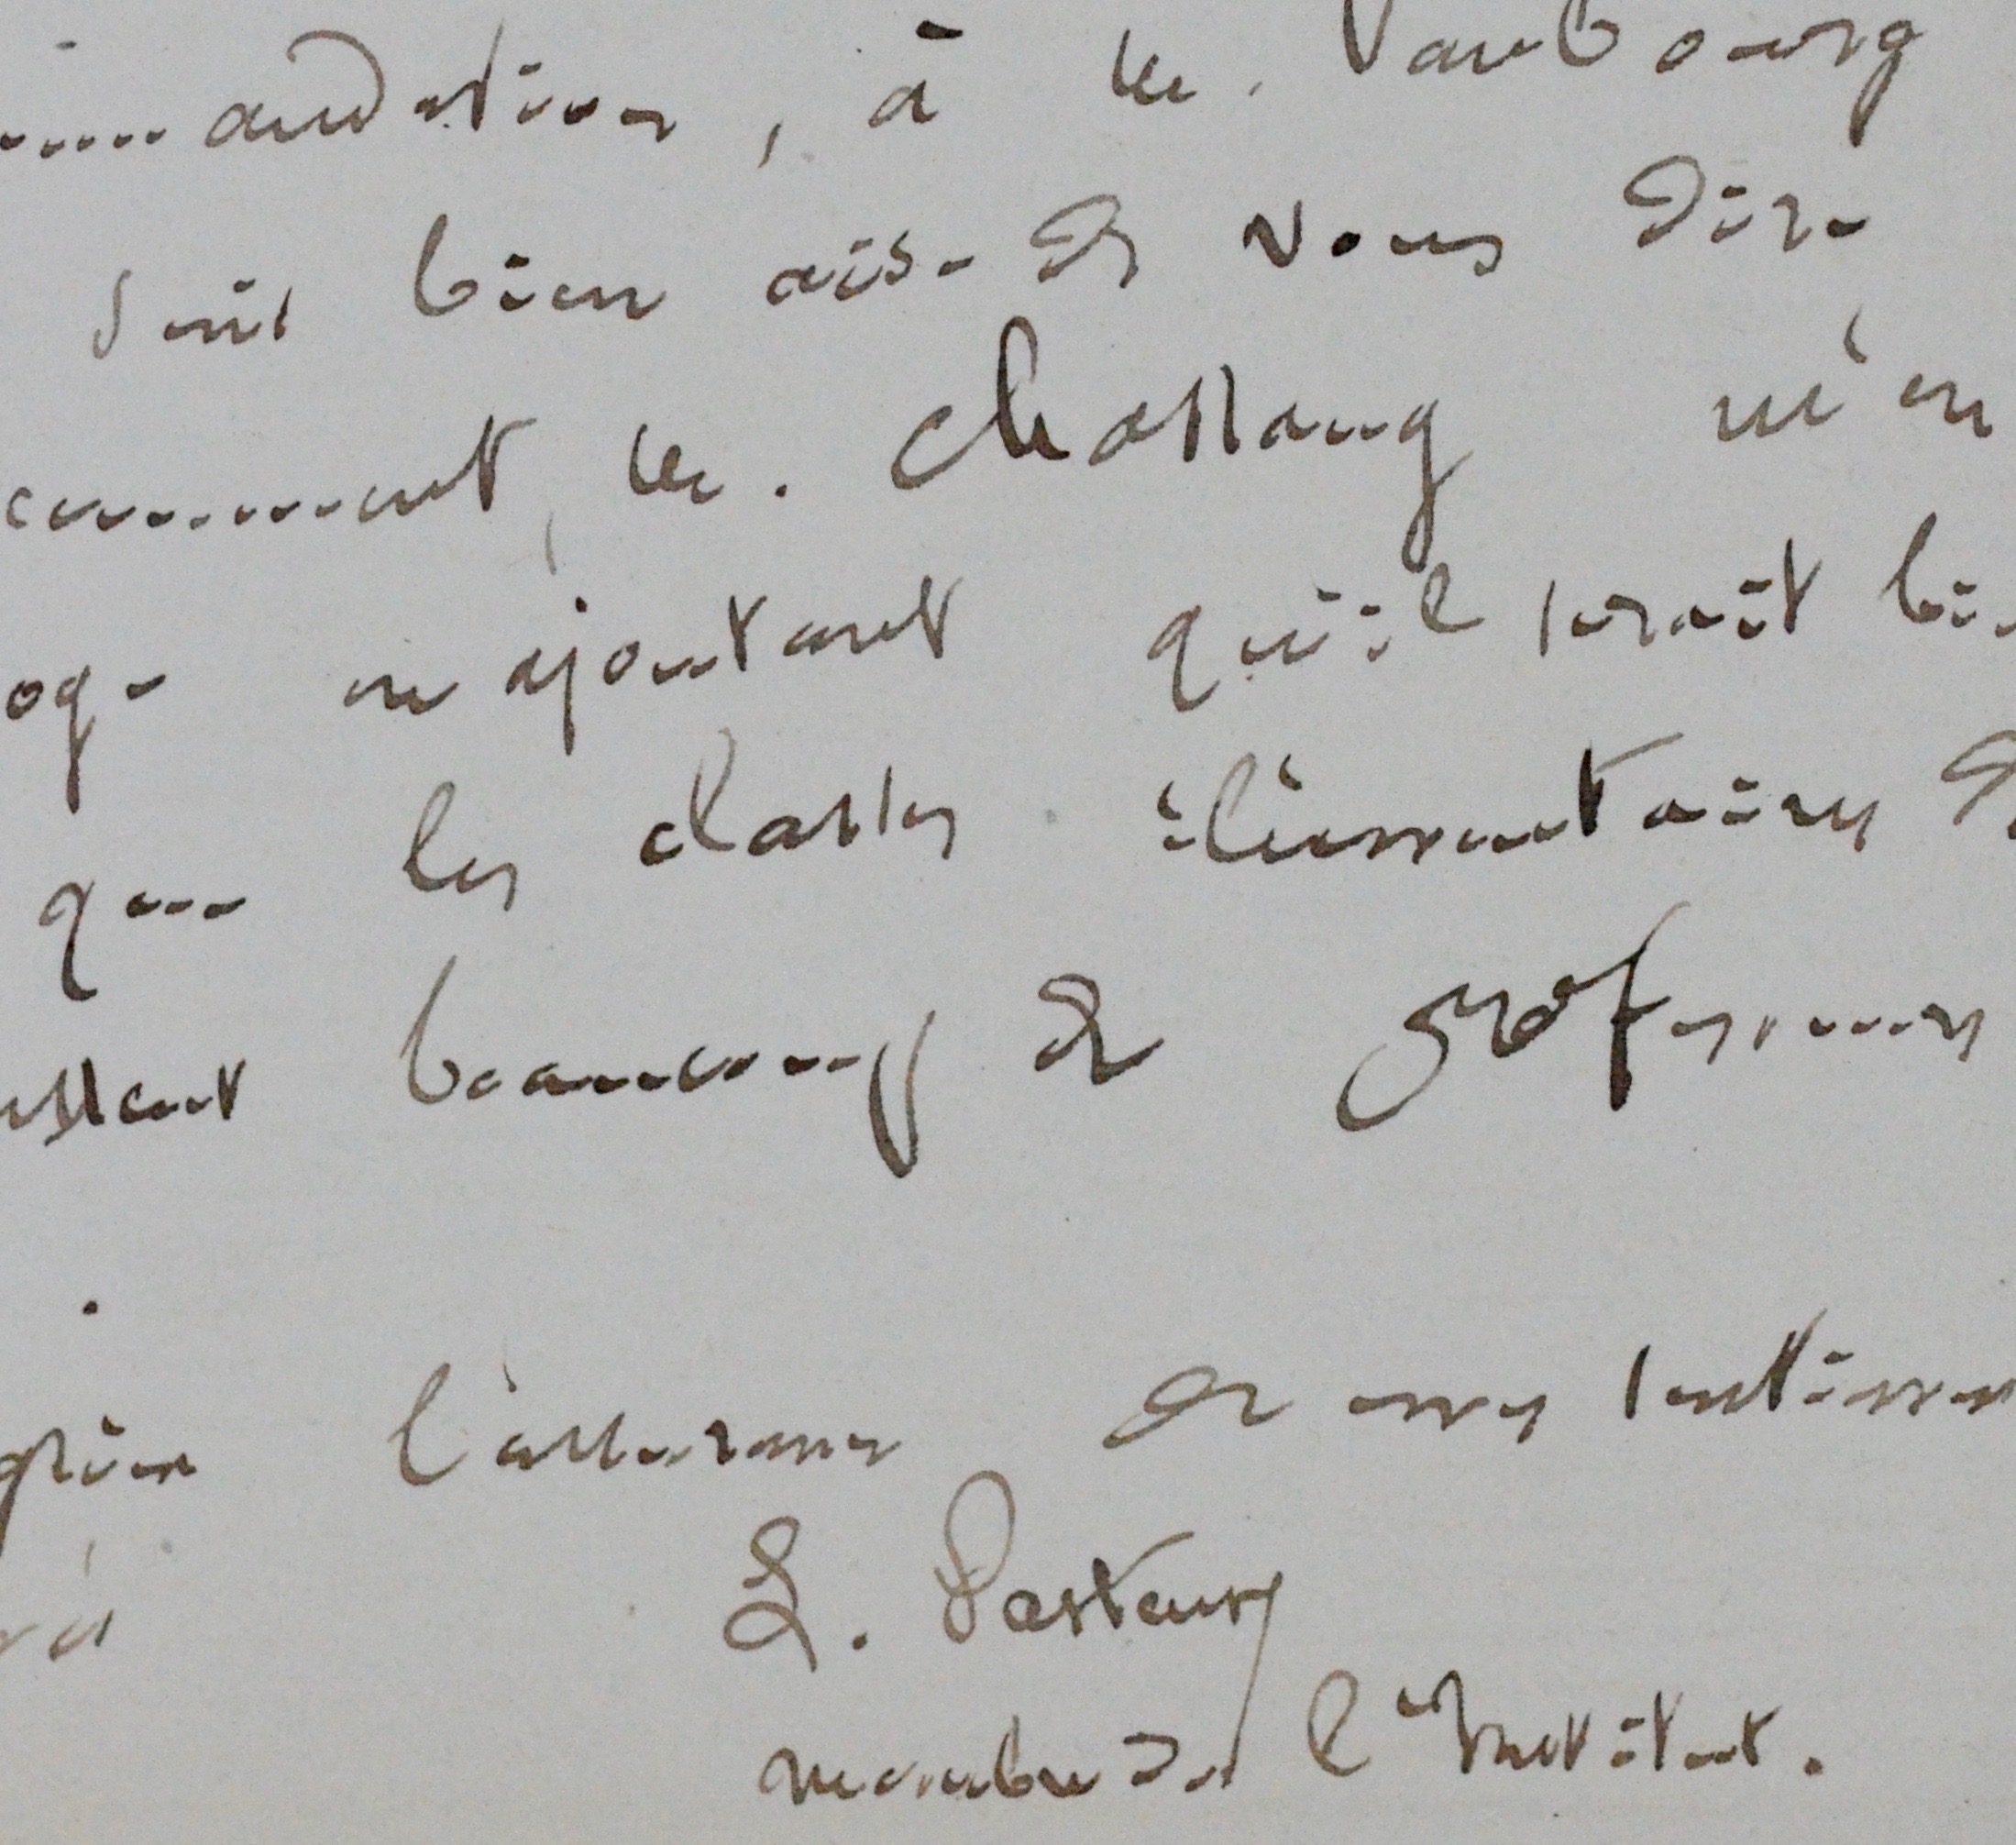 mmandation, à M. Vaubourg
suis bien aise de vous dire
comment, M. Chassang m'en
oge en ajoutant qu'il serait bi
que les classes élémentaires d
ussent beaucoup de professeurs
.
gréer l'assurance de mes sentimen
L. Pasteur
membre de l'Institut.